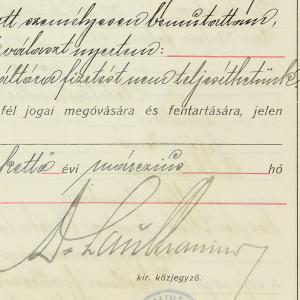 tt személyesen bemutattam,
választ nyertem:
áltóra fizetést nem teljesíthetünk.
fél jogai megóvására és fentartására, jelen
kettő évi március hó
Dr
kir. közjegyző.